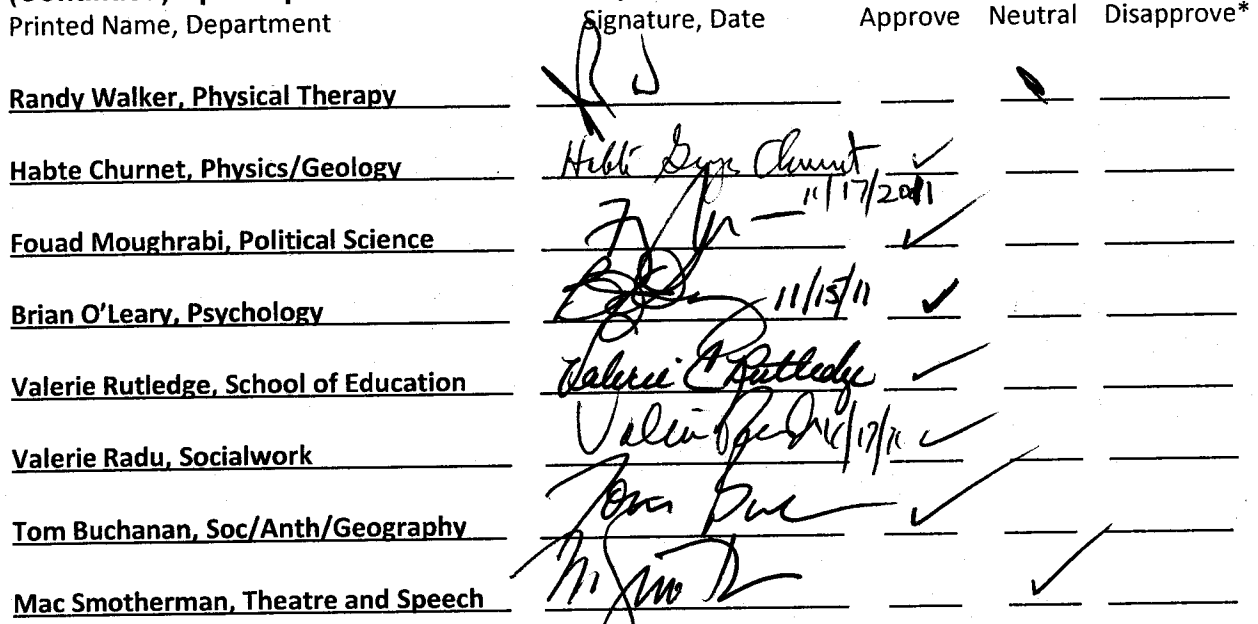 Printed Name, Department Signature, Date Approve Neutral Disapprove*
Randy Walker, Physical Therapy
Habte Churnet, Physics/Geology Habte Churnet ✓
11/17/2011
Fouad Moughrabi, Political Science ✓
Brian O'Leary, Psychology 11/15/11 ✓
Valerie Rutledge, School of Education Valerie C Rutledge ✓
Valerie Radu, Socialwork Valerie Radu ✓
Tom Buchanan, Soc/Anth/Geography Tom ✓
Mac Smotherman, Theatre and Speech ✓